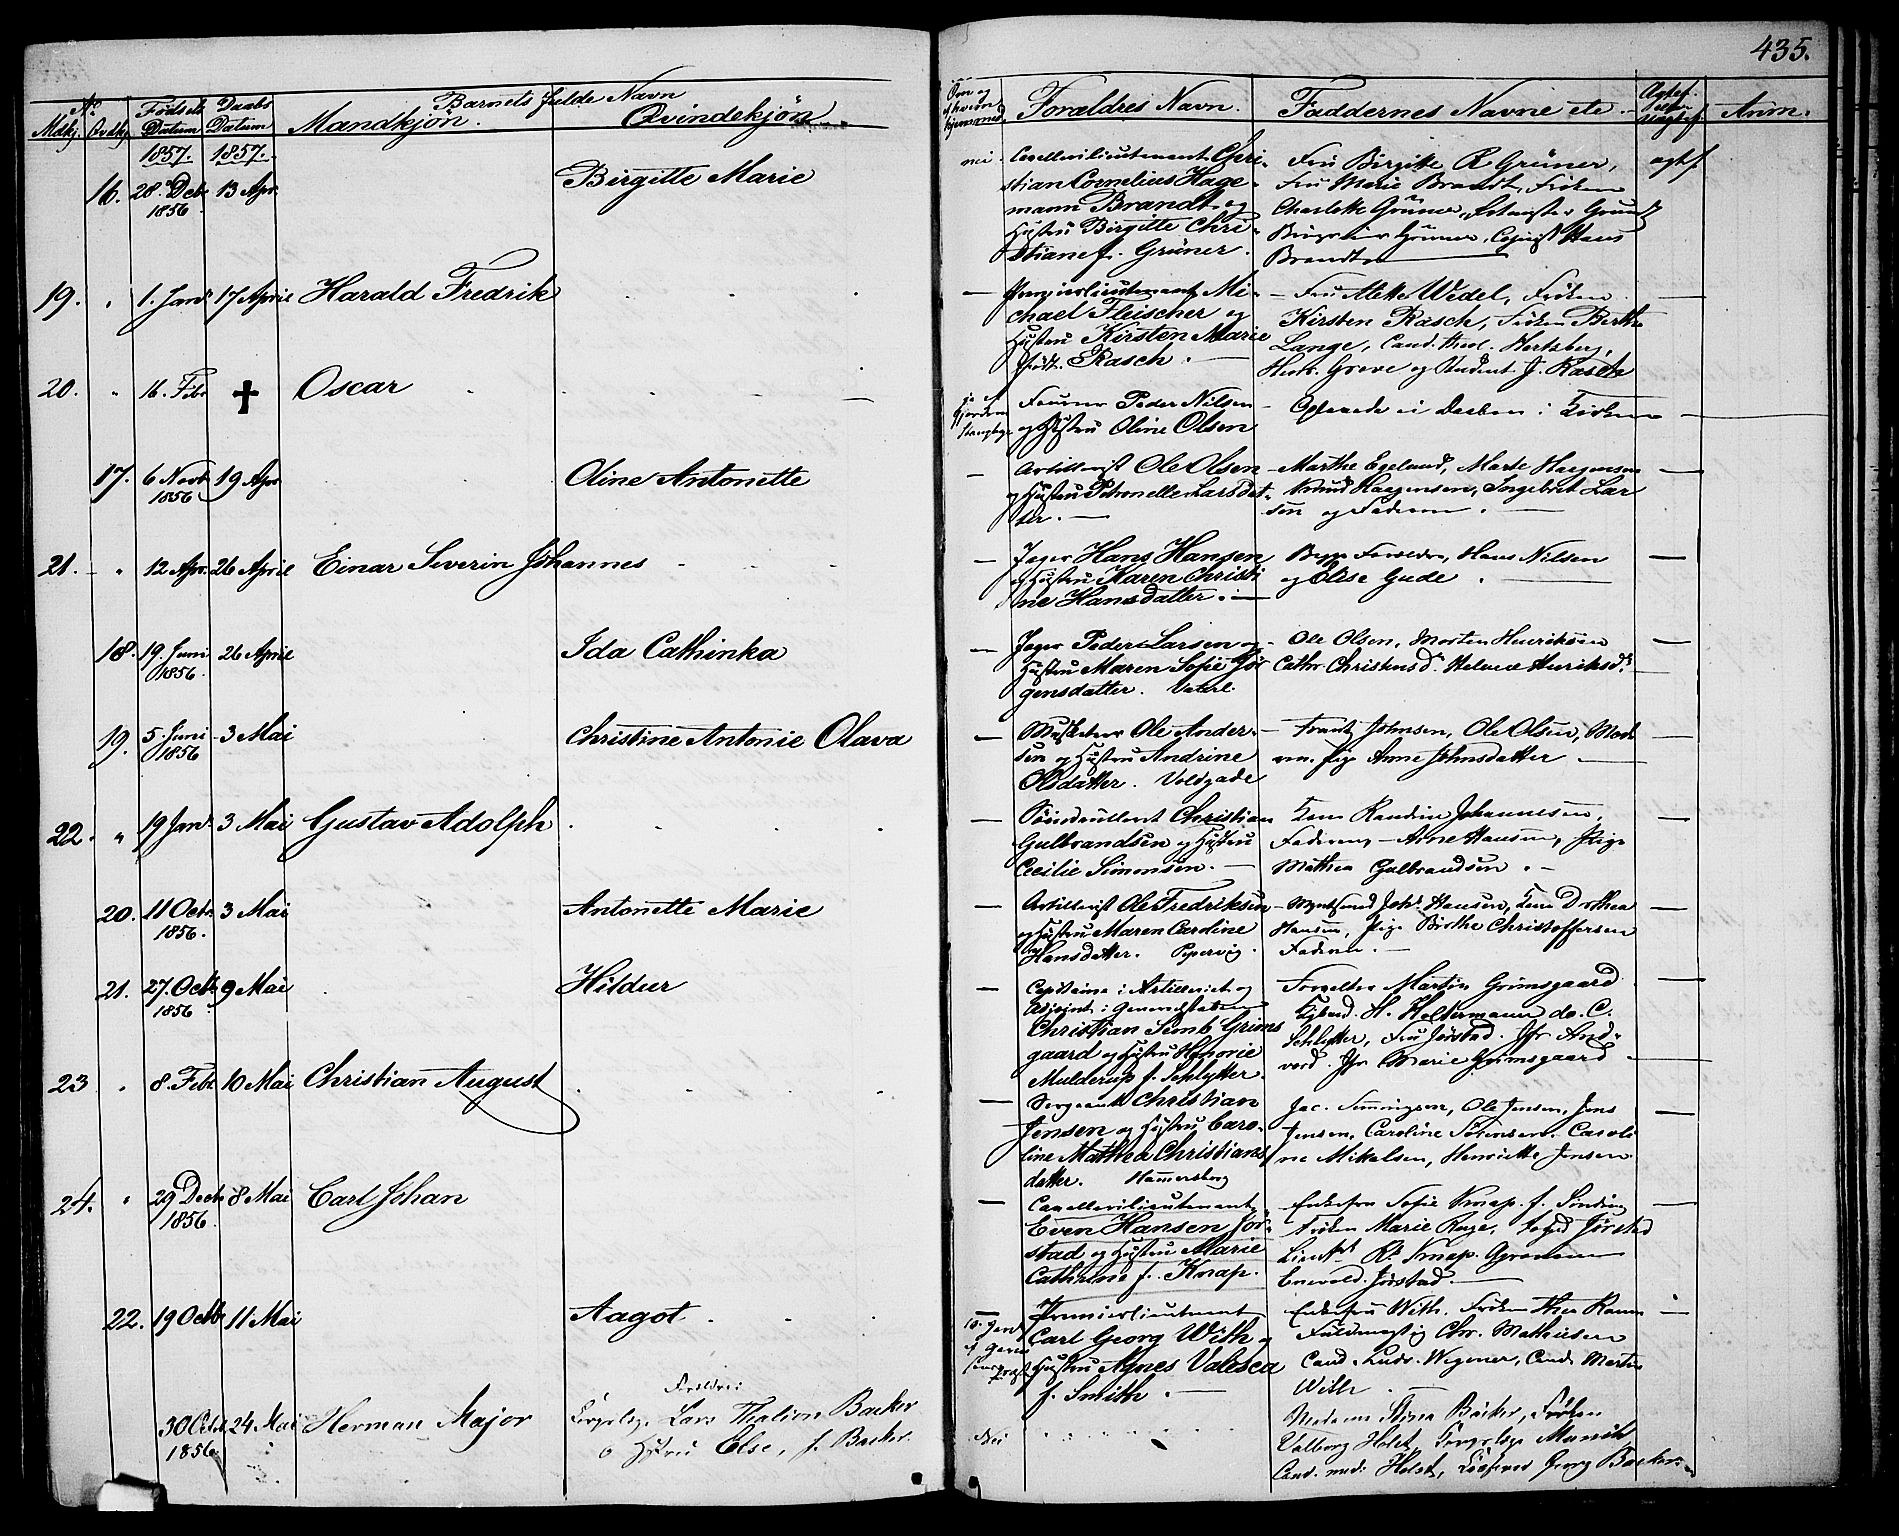 435.
No
Mdkj.
Qvdkj.
Fødsels
Datum
Daabs
Datum
Barnets fulde Navn
Mandkjøn.
Qvindekjøn.
Om og
af hvem
hjemmed.
Forældres Navn.
Faddernes Navne etc.
Anm.
1857. 1857.
16. 28. Decbr 13 Apr. Birgitte Marie
1856
nei. Cavallerilieutenant Chri-
stian Cornelius Hage-
mann Brandt og
Hustru Birgitte Chri-
stiane f. Grüner.
Fru Birgitte R Grüner,
Fru Marie Brandt, Frøken
Charlotte Grüner,
Grüner, Hans
Brandt
19. " 1. Jan. 17 April Harald Fredrik
Premierlieutenant Mi-
chael Fleischer og
Hustru Kirsten Marie
født Rasch.
Fru Mette Wedel, Frøken
Kirsten Rasch, Frøken Berthe
Lange, Cand. theol. Hertzberg,
Henr. Greve og Student J. Rasch
20. " 16. Febr † Oscar
Peder Nilsen
og Hustru Oline Olsen
Daaben i Kirken
17. 6 Novb 19 Apr Oline Antonette
1856
Artillerist Ole Olsen
og Hustru Petronelle Larsdat-
ter.
Marthe Egeland, Marte Haagensen
Knud Haagensen, Ingebret Lar
sen og Faderen.
21. " 12 Apr. 26 April Einar Severin Johannes
Jæger Hans Hansen
og Hustru Karen Christi
ne Hansdatter.
Begge Forældre, Hans Nilsen
og Elise Gude
18. 19. Juni 26 April Ida Cathinka
1856.
Jæger Peder Larsen og
Hustru Maren Sofie Jør
gensdatter. Vaterl.
Ole Olsen, Morten Henriksen
Cathr Christensd. Helene Henriksd.
19. 5. Juni 3 Mai Christine Antonie Olava
1856
Musketeer Ole Ander-
sen og Hustru Andrine
Olsdatter. Voldgade
Frantz Johnsen, Ole Olsen, Mod
ren. Pige Anne Johnsdatter
22. " 19 Jan. 3 Mai Gustav Adolph
Christian
Gulbrandsen og Hustru
Cecilie Simonsen.
Kone Randine Johannesen,
Faderen, Arne Hansen, Pige
Mathea Gulbrandsen
20. 11 Octr. 3 Mai Antonette Marie
1856.
Artillerist Ole Fredriksen
og Hustru Maren Caroline
Hansdatter. Pipervig.
Johs Hansen, Kone Dorthea
Hansen, Pige Birthe Christoffersen
Faderen.
21. 27. Octb. 9 Mai Hildur
1856
Capitaine i Artilleriet og
Adjoint i Generalstaben
Christian Semb Grims
gaard og Hustru Honorie
Mulderup f. Schlytter.
Forvalter Martin Grimsgaard
H. Heltermann do. C.
Schlytter, Fru Jørstad.
Marie Grimsgaard
23 " 8. Febr 10 Mai Christian August
Sergeant Christian
Jensen og Hustru Caro-
line Mathea Christians
datter. Hammersborg
Jac. Simmingsen, Ole Jensen, Jens
Jensen, Caroline Sørensen, Caroli
ne Mikelsen, Henriette Jensen
24. " 29 Decb 8 Mai Carl Johan
1856.
Cavallerilieutenant
Even Hansen Jør-
stad og Hustru Marie
Cathrine f. Knap.
Enkefru Sofie Knap f.
Frøken Marie Jørstad
Lieut. Knap.
Enevold Jørstad.
22. 19 Octb 11 Mai Aagot
Premierlieutenant
Carl Georg With og
Hustru Agnes Valesca
f. Smith.
Enkefru With, Frøken Thea
Fuldmægtig Chr. Mathiesen
Cand. Ludv. Wegener, Cand. Martin
With
30 Octb. 24 Mai Herman Major
1856
Forældre:
Lars Thalian Backer
o Hustru Else, f. Backer.
Nei
Madame Stina Backer, Frøken
Valborg Holst, Munch
Cand. med. Holst, Georg Backer